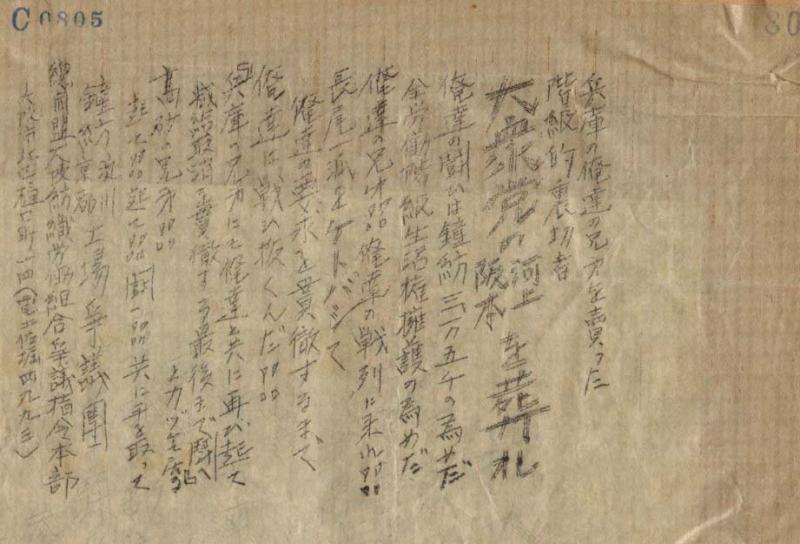 C0805
80
兵庫の俺達の兄弟を賣った
階級的裏切者
大衆党の河上阪本を葬れ
俺達の闘ひは鐘紡三万五千の為めだ
全労働階級生活権擁護の為めだ
俺達の兄弟!!俺達の戦列に来れ!!
長尾一派をケトバシて
俺達の要求を貫徹するまで
俺達は戦ひ抜くんだ!!
兵庫の兄弟にも俺達と共に再び起て
減給取消を貫徹する最後まで闘へ
高砂の兄弟!!
起て!!起て!!闘へ!!共に手を取って
鐘紡淀川京都工場争議團
總同盟大阪紡織労働組合争議指令本部